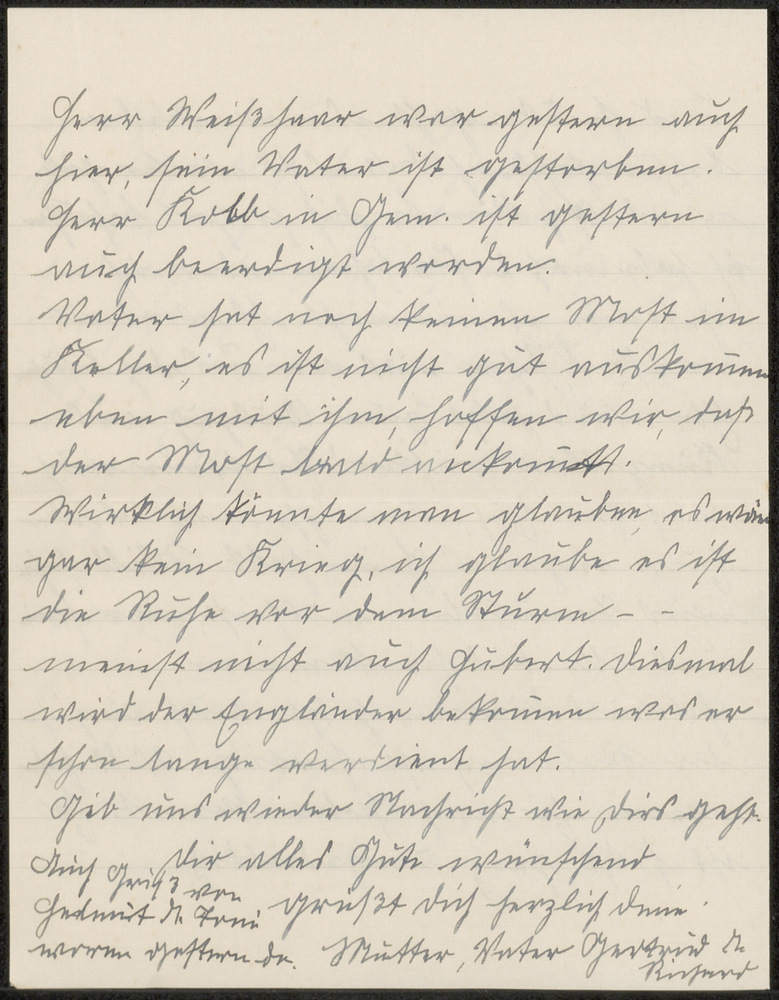 Herr Weißhaar war gestern auch
hier, sein Vater ist gestorben.
Herr Kolb in Gem. ist gestern
auch beerdigt worden.
Vater hat noch keinen Most im
Keller, es ist nicht gut auskommen
eben mit ihm, hoffen wir, daß
der Most bald ankommt.
Wirklich könnte man glauben, es wäre
gar kein Krieg, ich glaube es ist
die Ruhe vor dem Sturm – –
meinst nicht auch Hubert. Diesmal
wird der Engländer bekommen was er
schon lange verdient hat.
Gib uns wieder Nachricht wie Dirs geht.
Dir alles Gute wünschend
grüßt Dich herzlich deine
Mutter, Vater Gertrud u.
Richard
Auch Grüße von
Helmut u. Toni
waren gestern da.